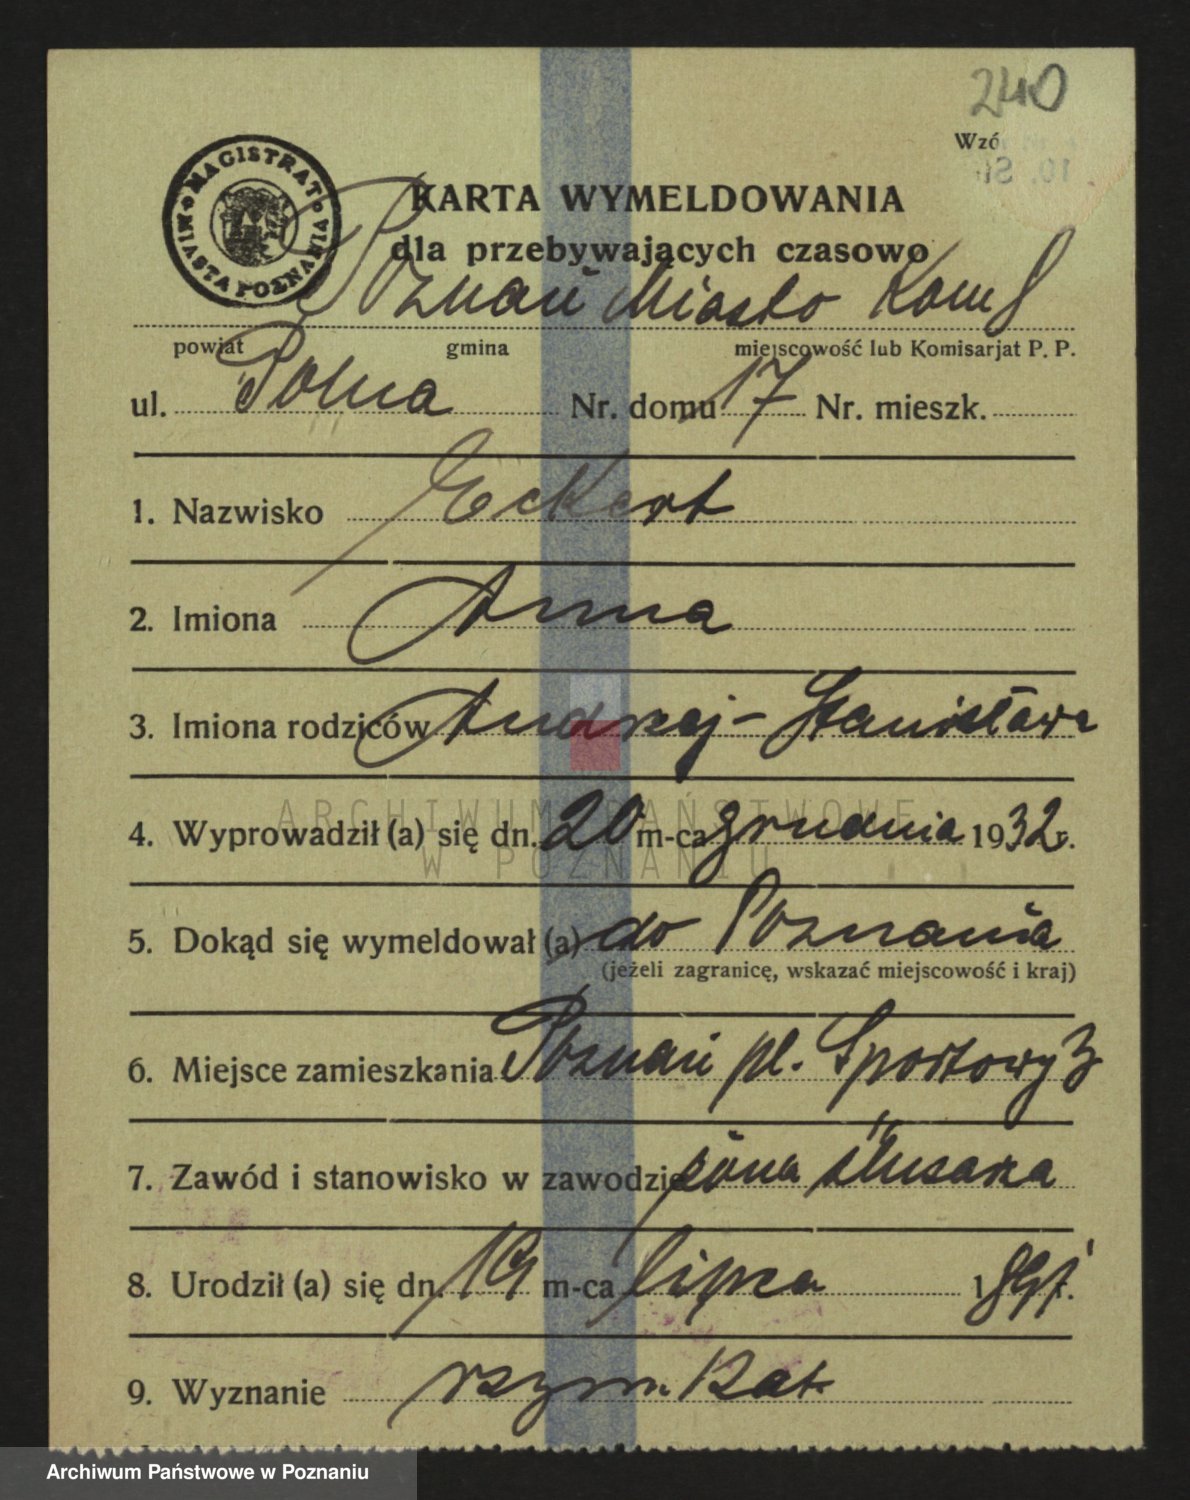 240
Wzó
MAGISTRAT MIASTA POZNANIA
KARTA WYMELDOWANIA
dla przebywających czasowo
Poznań Miasto
powiat gmina miejscowość lub Komisarjat P. P.
ul. Polna Nr. domu 17 Nr. mieszk.
1. Nazwisko Eckert
2. Imiona Anna
3. Imiona rodziców Andrzej - Stanisława
4. Wyprowadził (a) się dn. 20 m-ca grudnia 1932 r.
ARCHIWUM PAŃSTWOWE
W POZNANIU
5. Dokąd się wymeldował (a) do Poznania
(jeżeli zagranicę, wskazać miejscowość i kraj)
6. Miejsce zamieszkania Poznań pl. Sportowy 3
7. Zawód i stanowisko w zawodzie żona ślusarza
8. Urodził (a) się dn. 19 m-ca lipca 1891 r.
9. Wyznanie rzym. kat.
Archiwum Państwowe w Poznaniu